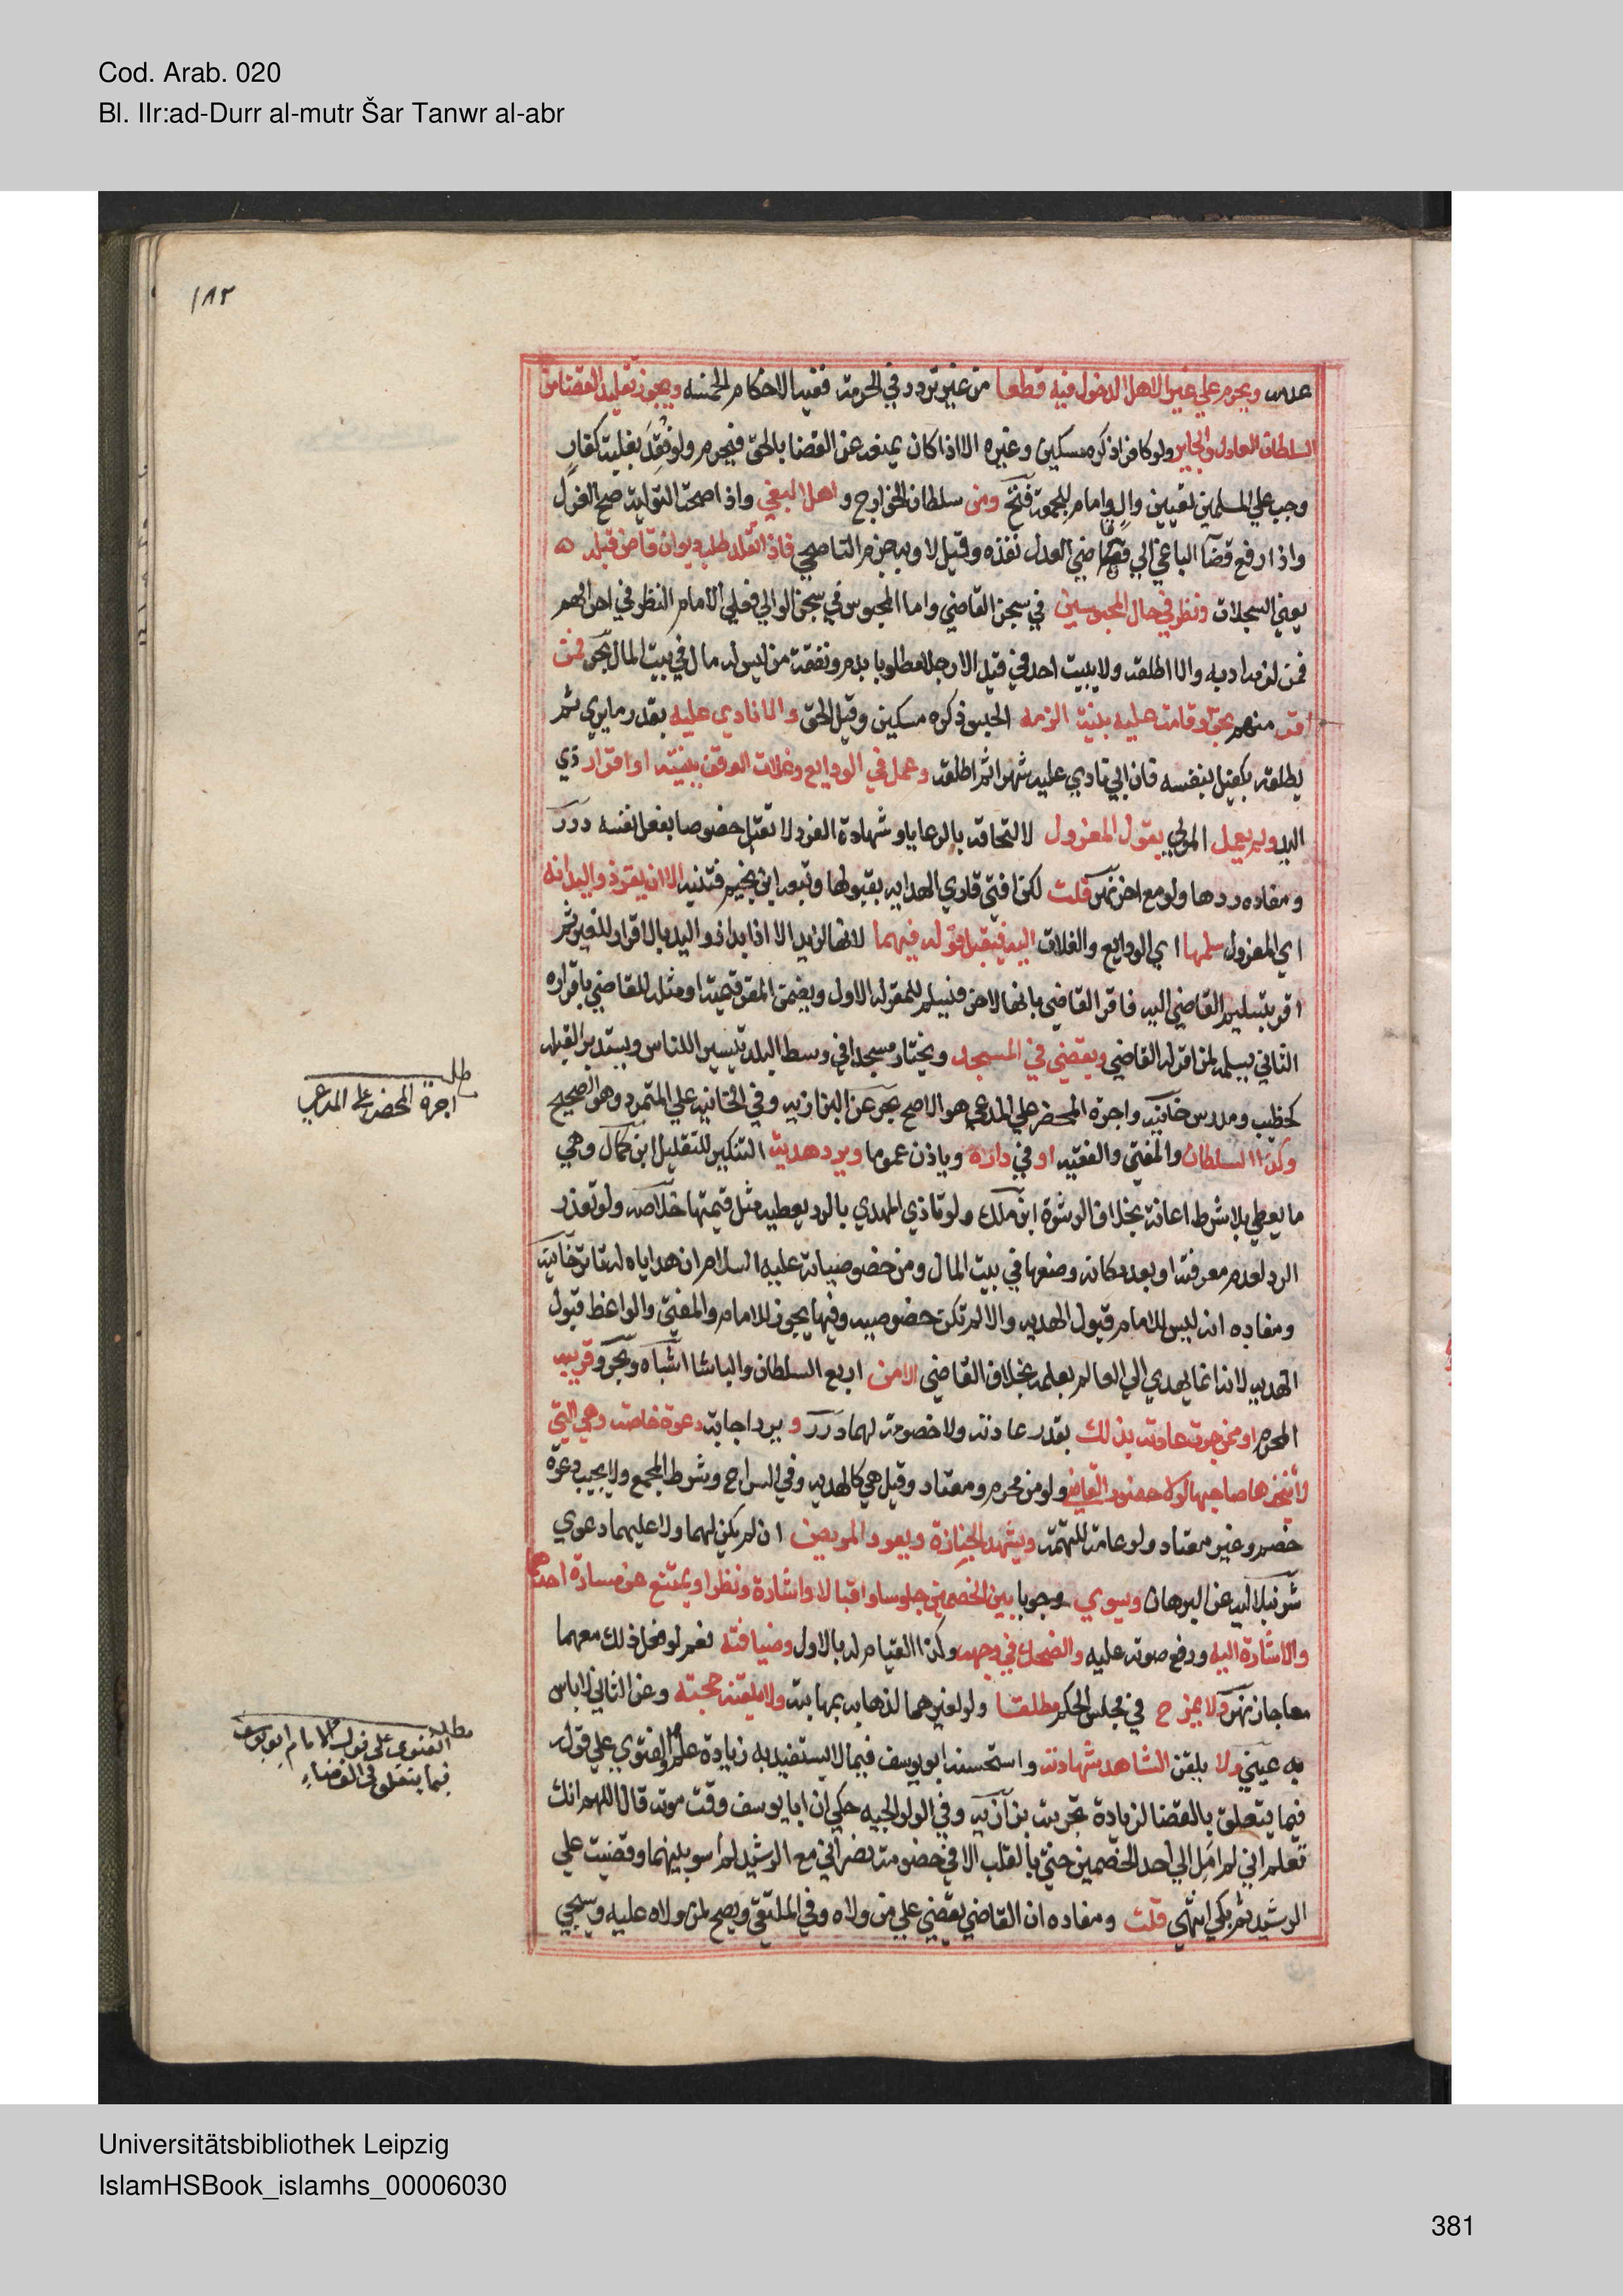 Cod. Arab. 020
Bl. IIr:ad-Durr al-mutr Šar Tanwr al-abr
١٨٢
ويحرم علي غير الاهل الدخول فيه قطعا من غير تردد في الحرمة ففيه الاحكام الخمسه ويجوز تقليد القضا من
السلطان العادل والجاير ولو كافرا ذكره مسكين وغيره الا اذا كان يمنعه عن القضا بالحق فيحرم ولو فقد بغلبة كفار
وجب علي المسلمين تعيين وال وامام للجمعة فتح ومن سلطان الخوارج و اهل البغي واذا صحت التولية صح العزل
واذا رفع قضا الباغي الي قاضي العدل نفذه وقيل لا وبه جزم الناصحي فاذا تقلد طلب ديوان قاض قبله
يعني السجلات ونظر في حال المحبوسين في سجن القاضي واما المحبوس في سجن الوالي فعلي الامام النظر في احوالهم
فمن لزمه ادبه والا اطلقه ولا يبيت احد في قيد الا رجلا مطلوبا بدم ونفقة من ليس له مال في بيت المال بحر فمن
اقر منهم بحق او قامت عليه بينة الزمه الحبس ذكره مسكين وقيل الحق والا نادي عليه بقدر ما يري ثم
يطلقه بكفيل بنفسه فان ابي نادي عليه شهرا ثم اطلقه وعمل في الودايع وغلات الوقف ببينة او اقرار ذي
اليد ولم يعمل المولي بقول المعزول لالتحاقه بالرعايا وشهادة الفرد لا تقبل خصوصا بفعل نفسه درر
ومفاده ردها ولو مع اخر نهر قلت لكن افتي قاري الهدايه بقبولها وتبعه ابن نجيم فتنبه الا ان يقر ذو اليد انه
اي المعزول سلمها اي الودايع والغلات اليه فيقبل قوله فيهما الا اذا بدا ذو اليد بالاقرار للغير ثم
اقر بتسليم القاضي اليه فاقر القاضي بانها لاخر فيسلم للمقر له الاول ويضمن المقر قيمته او مثله للقاضي باقراره
الثاني يسلمه لمن اقر له القاضي ويقضي في المسجد ويختار مسجدا في وسط البلد تيسيرا للناس ويستدبر القبله
كخطيب ومدرس خانيه واجرة المحضر علي المدعي هو الاصح بحر عن البزازيه وفي الخانيه علي المتمرد وهو الصحيح
وكذا السلطان والمفتي والفقيه او في داره وياذن عموما ويرد هدية التنكير للتقليل ابن كمال وهي
ما يعطي بلا شرط اعانة بخلاف الرشوة ابن ملك ولو تاذي المهدي بالرد يعطيه مثل قيمتها خلاصه ولو تعذر
الرد لعدم معرفته او بعد مكانه وضعها في بيت المال ومن خصوصياته عليه السلام ان هداياه له تاترخانية
ومفاده انه ليس للامام قبول الهديه والا لم تكن خصوصيه وفيها يجوز للامام والمفتي والواعظ قبول
الهديه لانه انما يهدي الي العالم بعلمه بخلاف القاضي الا من اربع السلطان والباشا اشباه وبحر وقريبه
المحرم او ممن جرت عادته بذلك بقدر عادته ولا خصومة لهما درر و يرد اجابة دعوة خاصة وهي التي
لا يتخذها صاحبها لولا حضور القاضي ولو من محرم ومعتاد وقيل هي كالهديه وفي السراج وشرط المجمع ولا يجيب دعوة
خصم وغير معتاد ولو عامة للتهمة ويشهد الجنازة ويعود المريض ان لم يكن لهما ولا عليهما دعوي
شرنبلاليه عن البرهان ويسوي وجوبا بين الخصمين جلوسا واقبالا واشارة ونظرا ويمتنع من مسارة احدهما
والاشارة اليه ورفع صوته عليه والضحك في وجهه وكذا القيام له بالاولي وضيافته نعم لو فعل ذلك معهما
معا جاز نهر ولا يمزح في مجلس الحكم مطلقا ولو لغيرهما لذهابه بمهابته ولا يلقنه حجته وعن الثاني لا باس
به عيني ولا يلقن الشاهد شهادته واستحسنه ابو يوسف فيما لا يستفيد به زيادة علم والفتوي علي قوله
فيما يتعلق بالقضا لزيادة تجربته بزازيه وفي الولوالجيه حكي ان ابا يوسف وقت موته قال اللهم انك
تعلم اني لم امل الي احد الخصمين حتي بالقلب الا في خصومة نصراني مع الرشيد لم اسو بينهما وقضيت علي
الرشيد ثم بكي انتهي قلت ومفاده ان القاضي يقضي علي من ولاه وفي الملتقي ويصح لمن ولاه عليه وسيجي
مطلب
اجرة المحضر على المدعي
مطلب
الفتوى على قول الامام ابو يوسف
فيما يتعلق في القضاء
Universitätsbibliothek Leipzig
IslamHSBook_islamhs_00006030
381